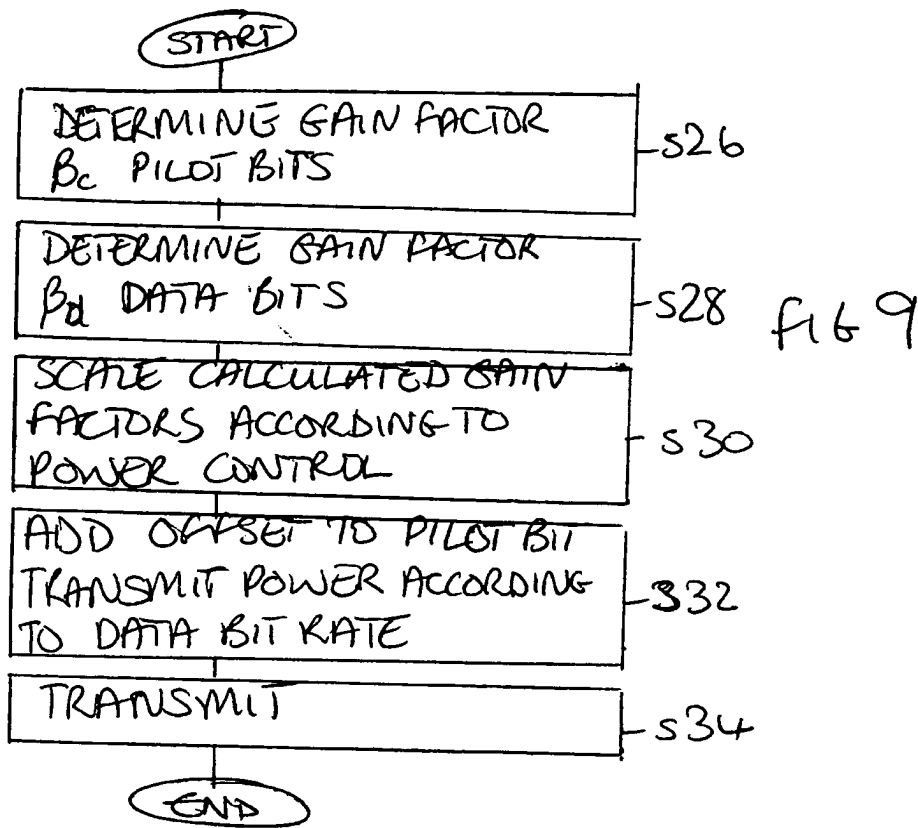 START
DETERMINE GAIN FACTOR
βc PILOT BITS
S26
DETERMINE GAIN FACTOR
βd DATA BITS
S28
FIG 9
SCALE CALCULATED GAIN
FACTORS ACCORDING TO
POWER CONTROL
S30
ADD OFFSET TO PILOT BIT
TRANSMIT POWER ACCORDING
TO DATA BIT RATE
S32
TRANSMIT
S34
END